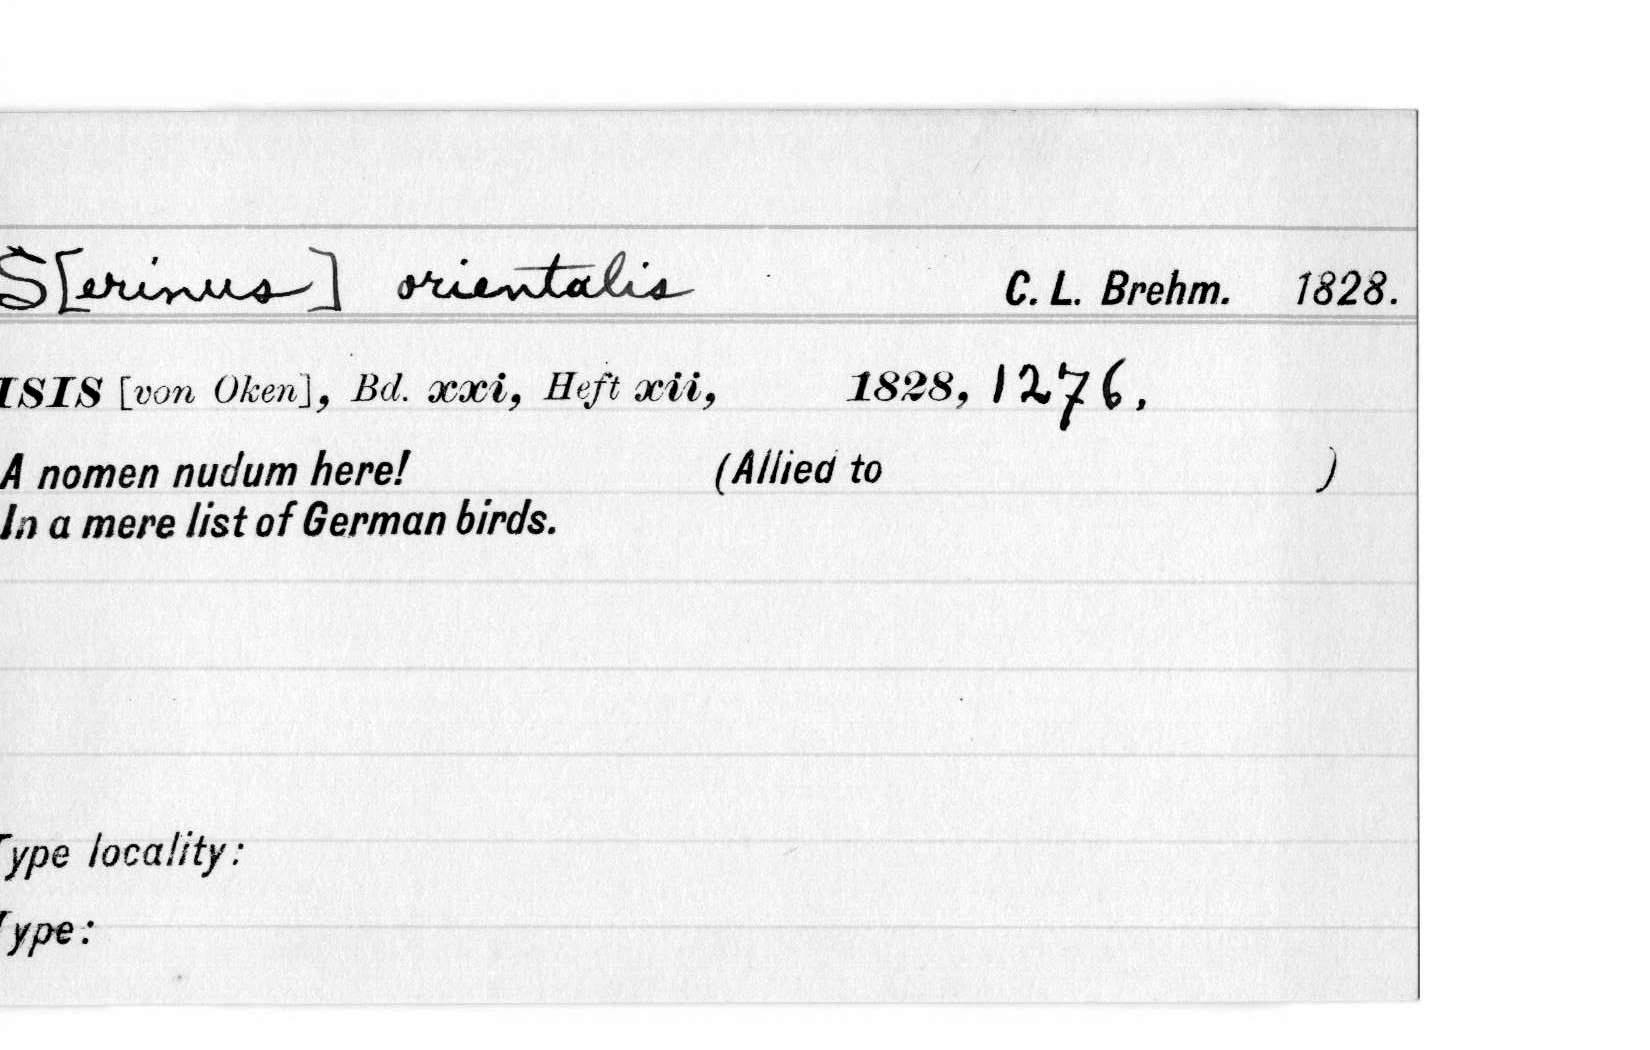 S[erinus] orientalis C. L. Brehm. 1828.
ISIS [von Oken], Bd. xxi, Heft xii, 1828, 1276.
A nomen nudum here! (Allied to )
In a mere list of German birds.
Type locality:
Type: